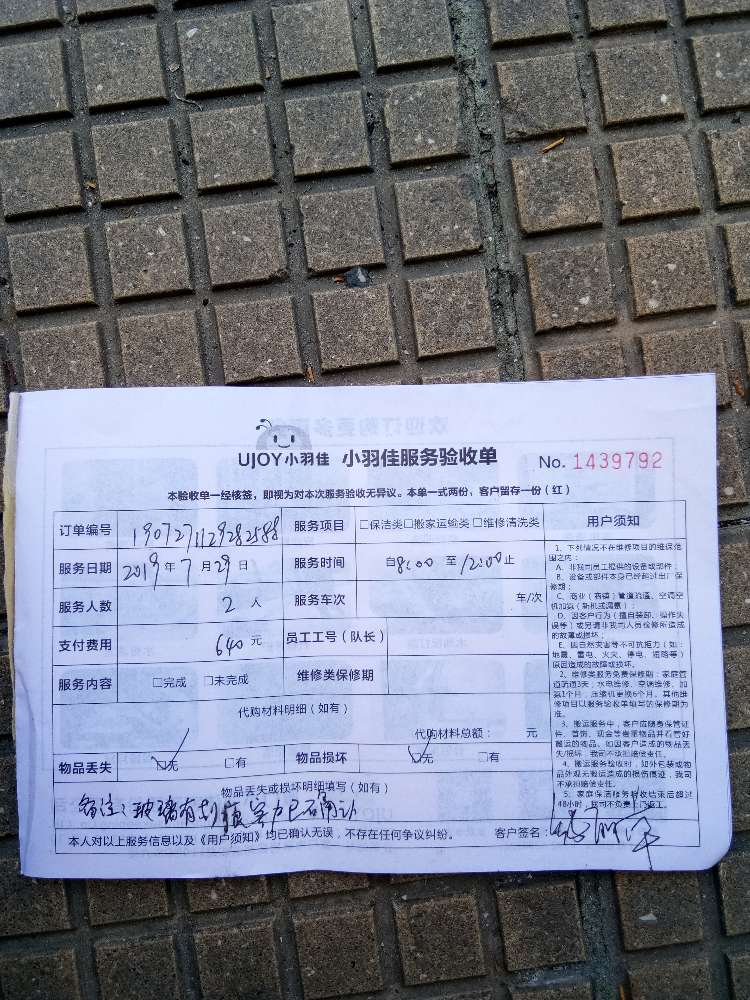 UJOY小羽佳 小羽佳服务验收单 No. 1439792
本验收单一经核签，即视为对本次服务验收无异议。本单一式两份、客户留存一份（红）
订单编号 190727112928258 服务项目 □保洁类□搬家运输类□维修清洗类 用户须知
服务日期 2019年7月29日 服务时间 自8:00 至 12:00止
服务人数 2 人 服务车次 车/次
支付费用 640 元 员工工号（队长）
服务内容 □完成 □未完成 维修类保修期
代购材料明细（如有）
代购材料总额： 元
物品丢失 □无 □有 物品损坏 □无 □有
物品丢失或损坏明细填写（如有）
备注：玻璃有划痕客户已确认
本人对以上服务信息以及《用户须知》均已确认无误，不存在任何争议纠纷。 客户签名：
1、下列情况不在维修项目的维保范
围之内：
A、非我司员工提供的设备或部件；
B、设备或部件本身已经超过出厂保
修期；
C、商业（商铺）管道疏通、空调空
机加氟（新机或漏氟）；
D、因客户行为（擅自装卸、操作失
误等）或另请非我司人员检修所造成
的故障或损坏；
E、因自然灾害等不可抗拒力（如：
地震、雷电、火灾、停电、短路等）
原因造成的故障或损坏。
2、维修类服务免费保修期：家庭管
道疏通3天，水电维修、空调维修、加
氟1个月，压缩机更换6个月。其他维
修项目以服务验收单填写的保修期为
准。
3、搬运服务中，客户应随身保管证
件、首饰、现金等贵重物品并看管好
搬运的物品。如因客户造成的物品丢
失/损坏，我司不承担赔偿责任。
4、搬运服务验收时，如外包装或物
品外观无搬运造成的损伤痕迹，我司
不承担赔偿责任。
5、家庭保洁服务验收结束后超过
48小时，我司不负责上门返工。